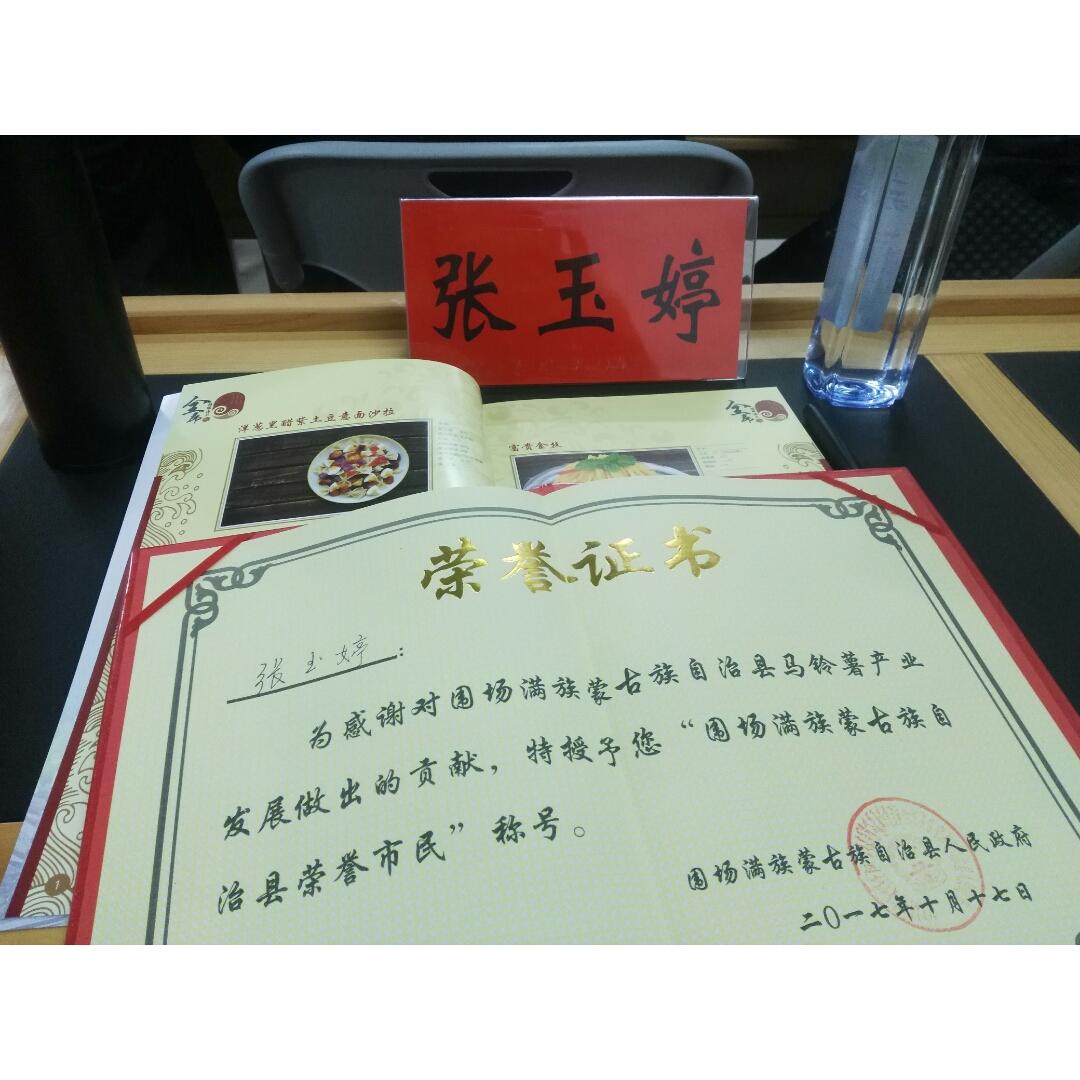 张玉婷
洋葱黑醋紫土豆意面沙拉
富贵金丝
荣誉证书
张玉婷：
为感谢对围场满族蒙古族自治县马铃薯产业
发展做出的贡献，特授予您“围场满族蒙古族自
治县荣誉市民”称号。
围场满族蒙古族自治县人民政府
二〇一七年十月十七日